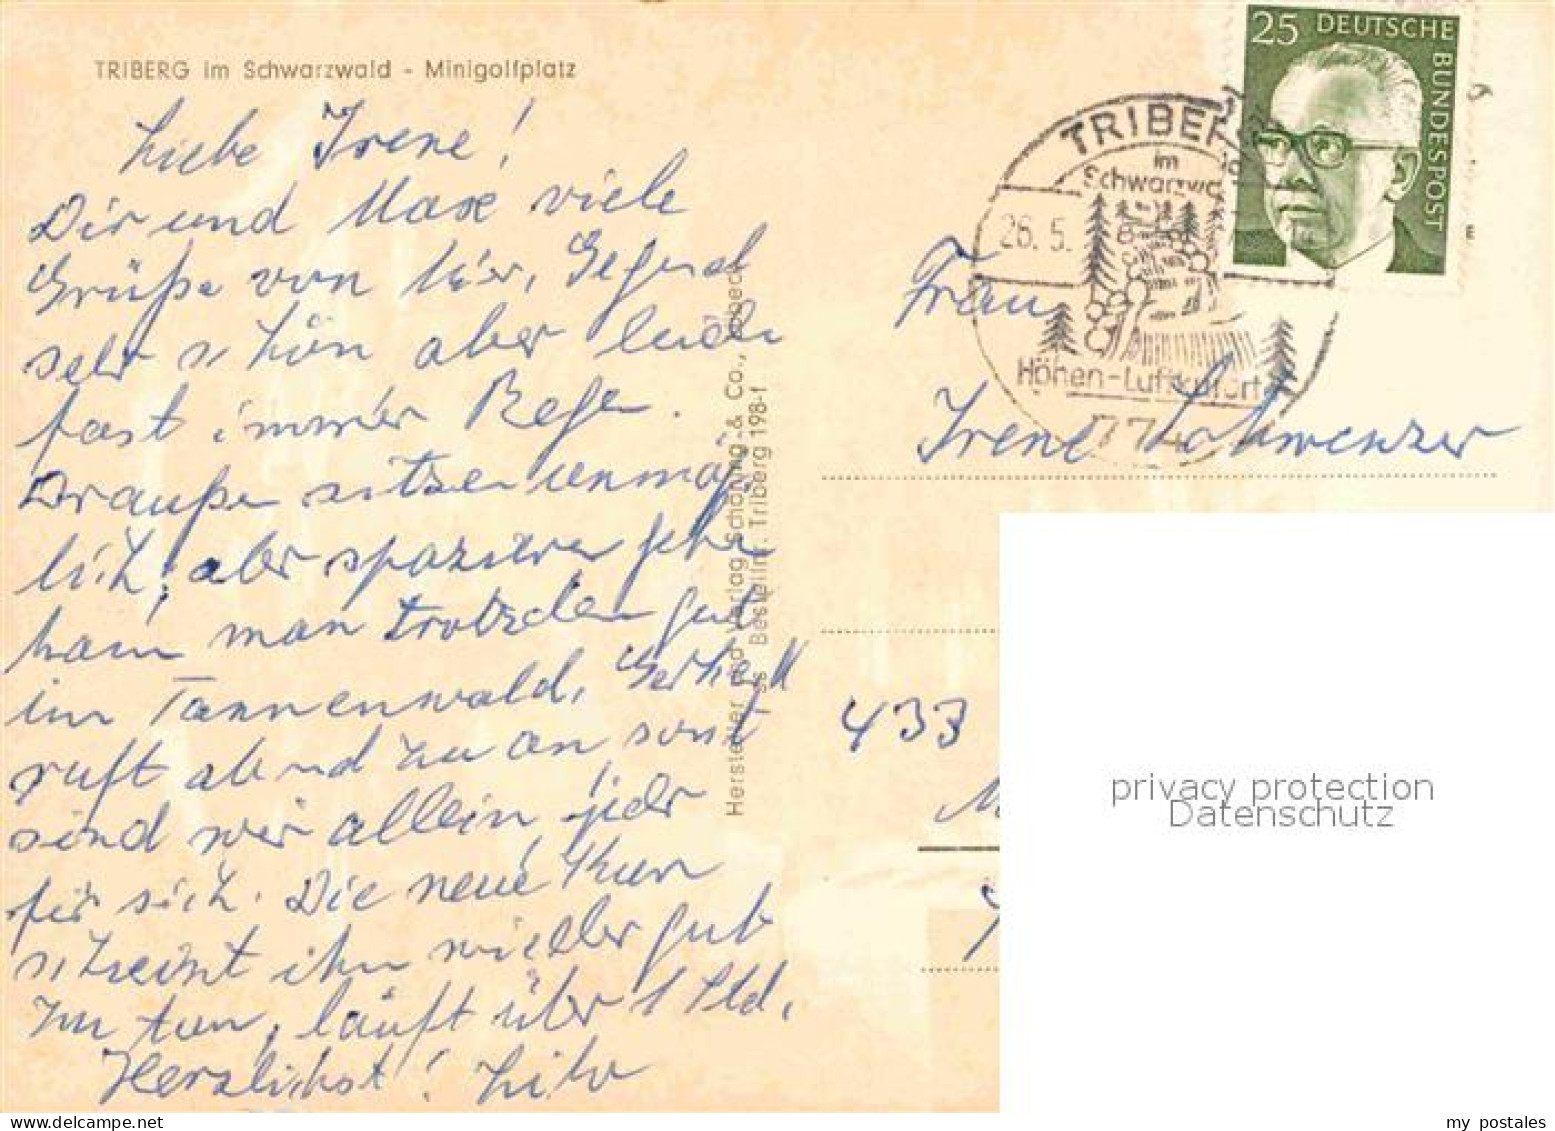 TRIBERG im Schwarzwald - Minigolfplatz
Liebe Irene!
Dir und Maxe viele
Grüße von hier, Gegend
sehr schön aber leider
fast immer Regen.
Draußen sitzen unmög
lich, aber spazieren gehn
kann man trotzdem gut
im Tannenwald.
ruft abend zu an sonst
sind wir allein, jeder
für sich. Die neue Kur
scheint ihm wieder gut
zu tun, läuft über 1 Std.
Herzlichst!
Hersteller und Verlag Schöning & Co., Lübeck
Bestellnr. Triberg 198-f
25 DEUTSCHE BUNDESPOST
TRIBERG
im
Schwarzwa
26. 5.
Höhen-Luftkurort
774
Frau
Irene Schwenzer
433
privacy protection
Datenschutz
my postales